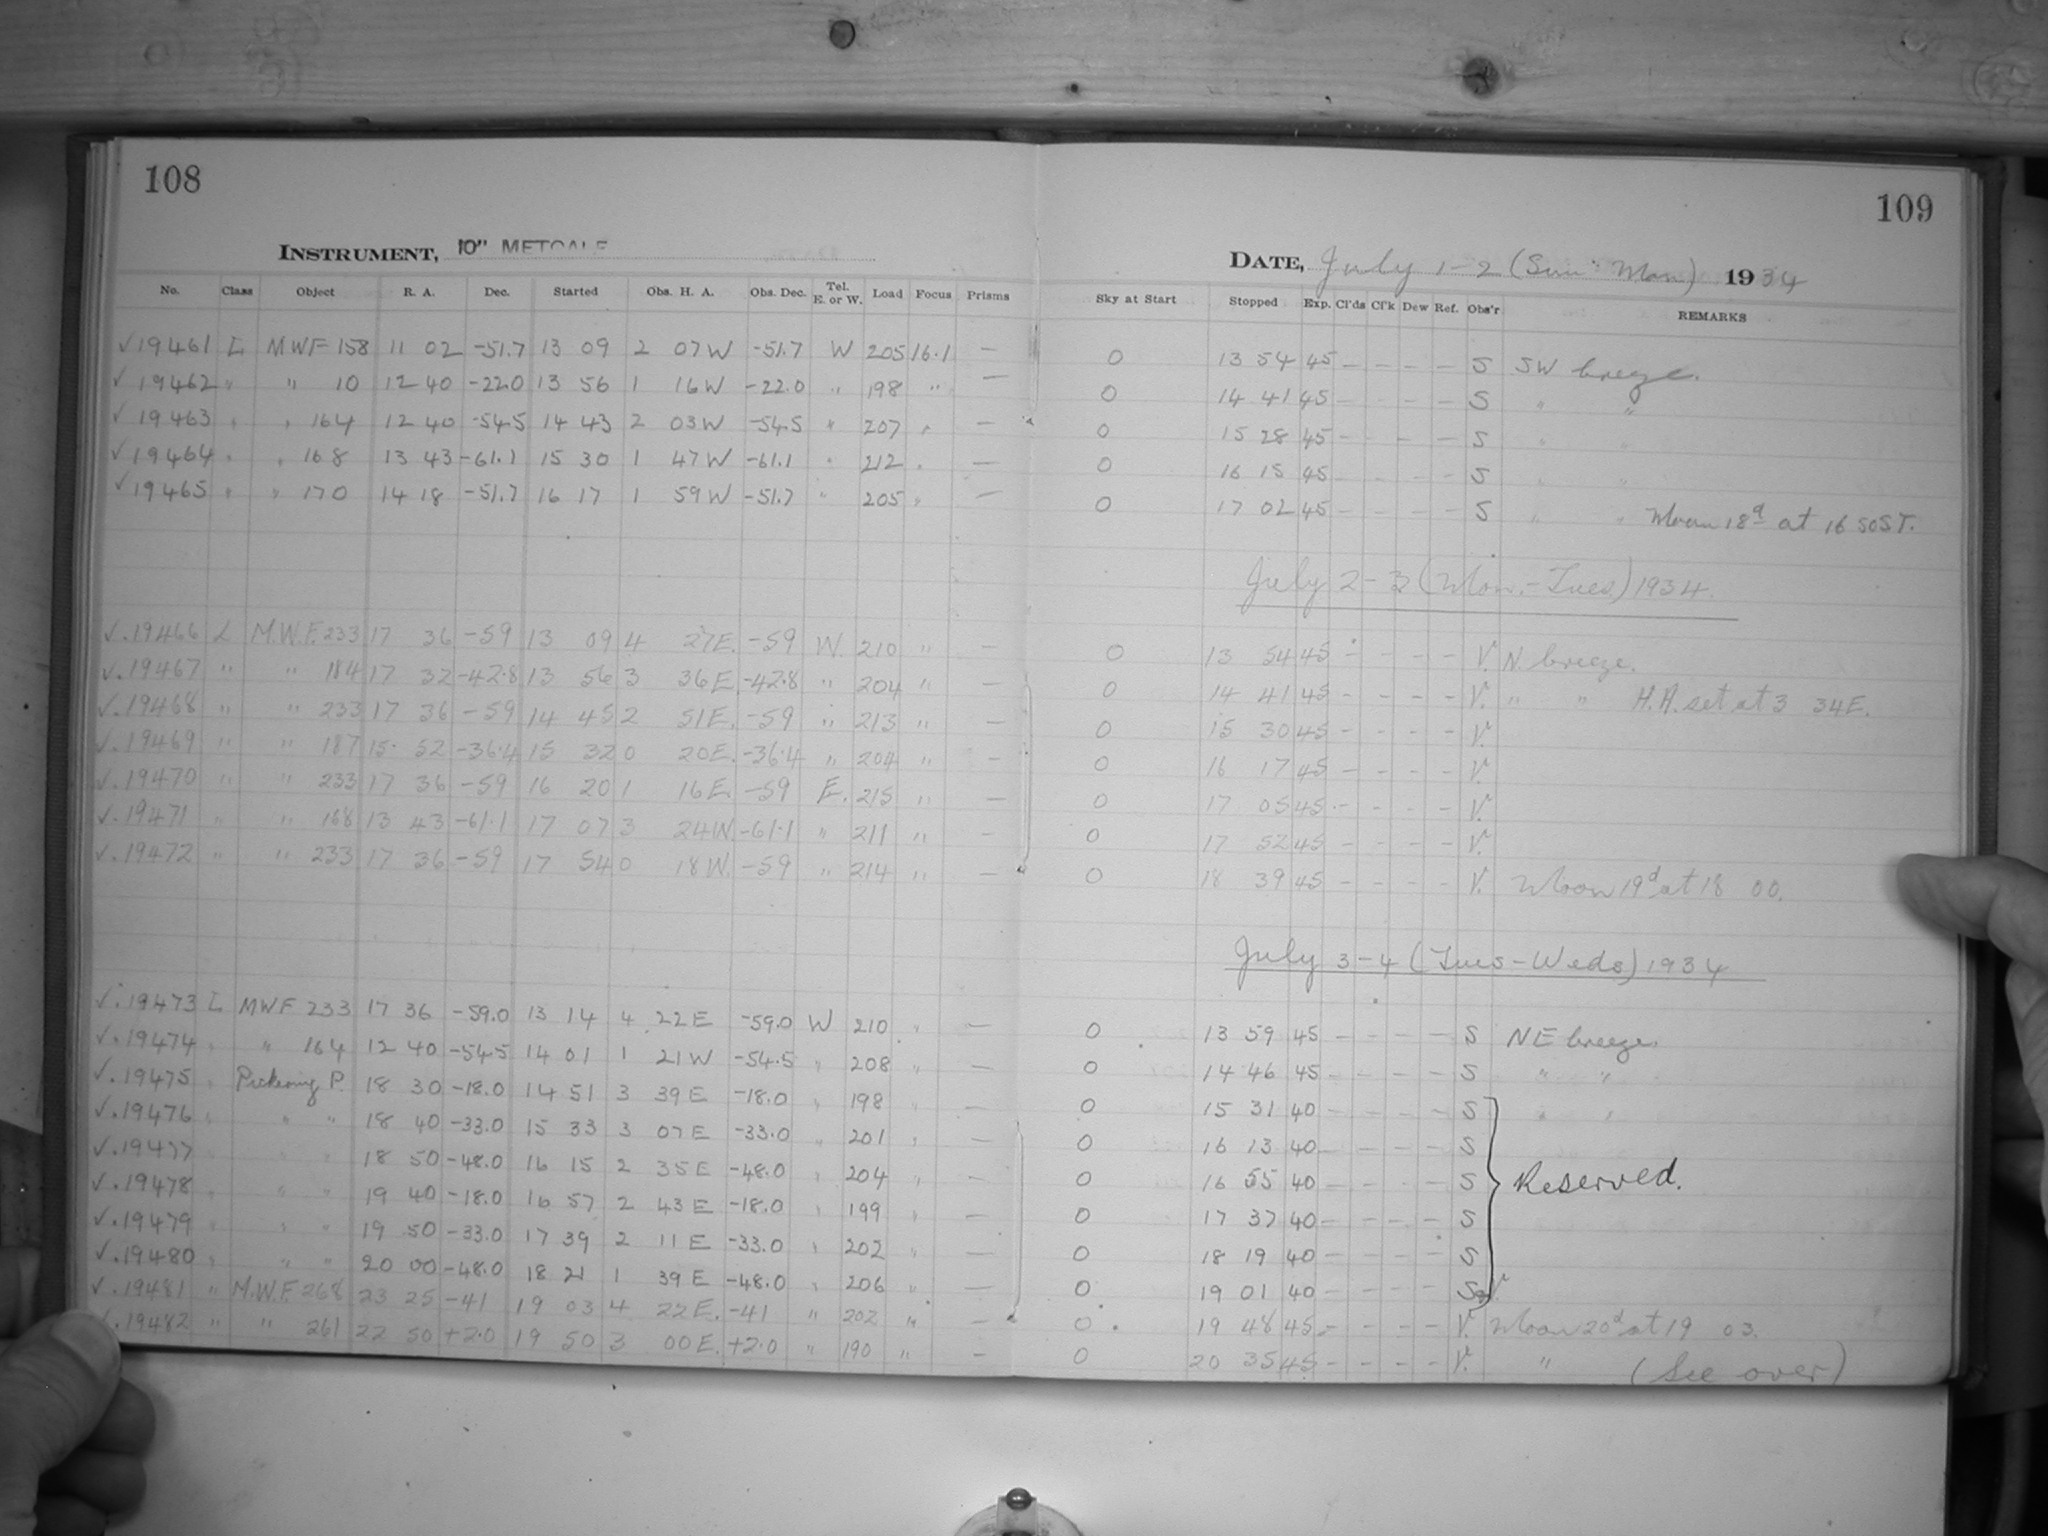 108
109
INSTRUMENT, 10" METCALF
DATE, July 1-2 (Sun-Mon) 1934
No. Class Object R. A. Dec. Started Obs. H. A. Obs. Dec. Tel. E. or W. Load Focus Prisms Sky at Start Stopped Exp. Cl'ds Cl'k Dew Ref. Obs'r REMARKS
✓19461 L MWF 158 11 02 -51.7 13 09 2 07W -51.7 W 205 16.1 — 0 13 54 45 – – – – S SW breeze.
✓19462 " " 10 12 40 -22.0 13 56 1 16W -22.0 " 198 " — 0 14 41 45 – – – – S " "
✓19463 " " 164 12 40 -54.5 14 43 2 03W -54.5 " 207 " — 0 15 28 45 – – – – S " "
✓19464 " " 168 13 43 -61.1 15 30 1 47W -61.1 " 212 " — 0 16 15 45 – – – – S " "
✓19465 " " 170 14 18 -51.7 16 17 1 59W -51.7 " 205 " — 0 17 02 45 – – – – S " " Moon 18d at 16 50 ST.
July 2-3 (Mon.-Tues) 1934.
✓.19466 L M.W.F. 233 17 36 -59 13 09 4 27E. -59 W. 210 " – 0 13 54 45 – – – – V. N. breeze.
✓.19467 " " 184 17 32 -42.8 13 56 3 36E -42.8 " 204 " – 0 14 41 45 – – – – V. " " H.A. set at 3 34E.
✓.19468 " " 233 17 36 -59 14 45 2 51E. -59 " 213 " – 0 15 30 45 – – – – V.
✓.19469 " " 187 15 52 -36.4 15 32 0 20E. -36.4 " 204 " – 0 16 17 45 – – – – V.
✓.19470 " " 233 17 36 -59 16 20 1 16E. -59 E. 215 " – 0 17 05 45 – – – – V.
✓.19471 " " 168 13 43 -61.1 17 07 3 24W. -61.1 " 211 " – 0 17 52 45 – – – – V.
✓.19472 " " 233 17 36 -59 17 54 0 18W. -59 " 214 " – 0 18 39 45 – – – – V. Moon 19d at 18 00.
July 3-4 (Tues-Weds) 1934
✓.19473 L MWF 233 17 36 -59.0 13 14 4 22E -59.0 W 210 " — 0 13 59 45 – – – – S NE breeze.
✓.19474 " " 164 12 40 -54.5 14 01 1 21W -54.5 " 208 " — 0 14 46 45 – – – – S " "
✓.19475 " Pickering P. 18 30 -18.0 14 51 3 39E -18.0 " 198 " — 0 15 31 40 – – – – S " "
✓.19476 " " " 18 40 -33.0 15 33 3 07E -33.0 " 201 " — 0 16 13 40 – – – – S
✓.19477 " " " 18 50 -48.0 16 15 2 35E -48.0 " 204 " — 0 16 55 40 – – – – S Reserved.
✓.19478 " " " 19 40 -18.0 16 57 2 43E -18.0 " 199 " — 0 17 37 40 – – – – S
✓.19479 " " " 19 50 -33.0 17 39 2 11E -33.0 " 202 " — 0 18 19 40 – – – – S
✓.19480 " " " 20 00 -48.0 18 21 1 39E -48.0 " 206 " — 0 19 01 40 – – – – S V
✓.19481 " M.W.F. 268 23 25 -41 19 03 4 22E. -41 " 202 " – 0 19 48 45 – – – – V. Moon 20d at 19 03.
✓.19482 " " 261 22 50 +2.0 19 50 3 00E. +2.0 " 190 " – 0 20 35 45 – – – – V. " (See over)